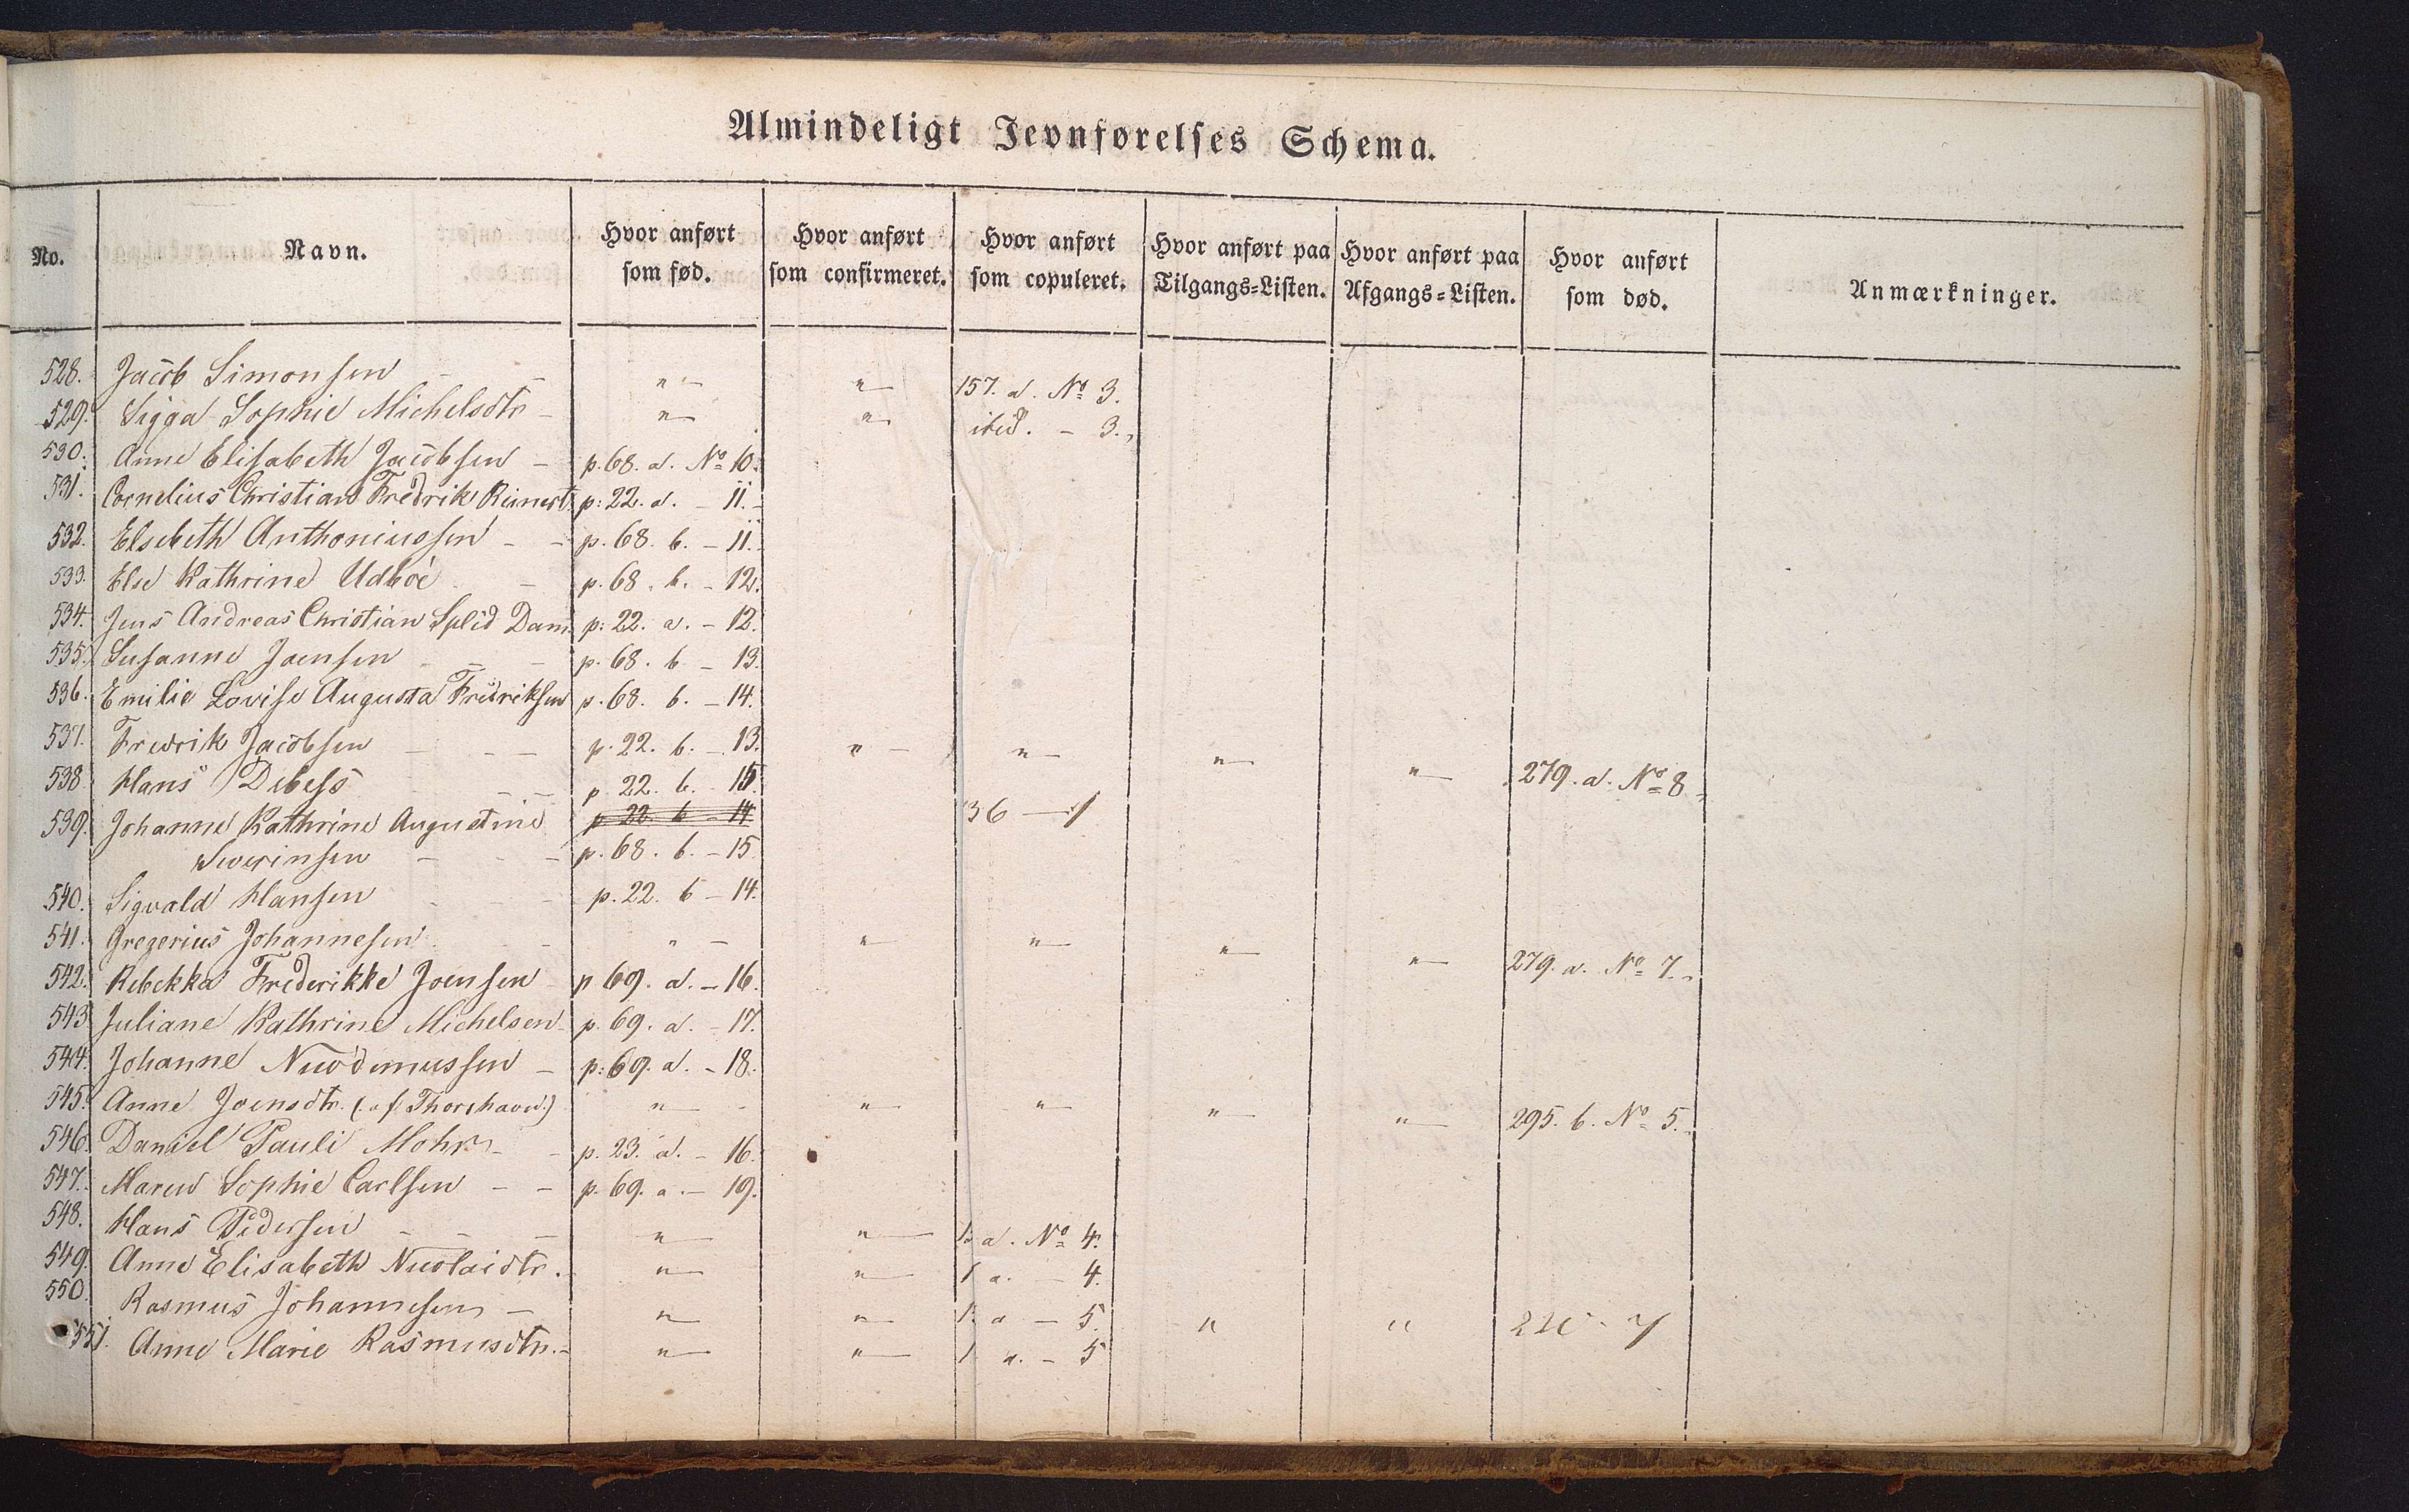 Almindeligt Jevnførelses Schema.
No. Navn. Hvor anført som fød. Hvor anført som confirmeret. Hvor anført som copuleret. Hvor anført paa Tilgangs=Listen. Hvor anført paa Afgangs=Listen. Hvor anført som død. Anmærkninger.
528. Jacob Simonsen - - " - " - 157. a. No 3.
529. Sigga Sophie Michelsdtr - " - " - ibid. - 3.
530. Anne Elisabeth Jacobsen - p. 68. a. No 10.
531. Cornelius Christian Fredrik Reinert p: 22. a. - 11. -
532. Elsebeth Anthoniussen - - p. 68. b. - 11.
533. Else Kathrine Udboe - p. 68. b. - 12.
534. Jens Andreas Christian Splid Dam p: 22. a. - 12.
535. Susanne Joensen - - - p. 68. b - 13.
536. Emilie Lovise Augusta Fredriksen p. 68. b. - 14.
537. Fredrik Jacobsen - - - p. 22. b. - 13. " - " - " - " - 279. a. No 8.
538. Hans Debess - - p. 22. b. 15.
539. Johanne Kathrine Augustine p 22. b - 14 36 - 1
Severinsen - - - p. 68. b. - 15
540. Sigvald Hansen - - - p. 22. b - 14.
541. Gregerius Johannesen - " - " - " - " - " - 279. a. No 7.
542. Rebekka Frederikke Joensen p 69. a. - 16.
543 Juliane Kathrine Michelsen - p. 69. a. - 17.
544. Johanne Nicodemussen - p: 69. a. - 18.
545. Anne Joensdtr. (af Thorshavn.) " - " - " - " - " - 295. b. No 5.
546. Daniel Pauli Mohr - - p. 23. a. - 16.
547. Maren Sophie Carlsen - - p. 69. a. - 19.
548. Hans Pedersen - - - " - " - 1. a. No 4.
549. Anne Elisabeth Nicolaidtr. " - " - 1 a. - 4.
550. Rasmus Johannesen - " - " - 1. a - 5. " "
551. Anne Marie Rasmusdtr. - " - " - 1 a. - 5